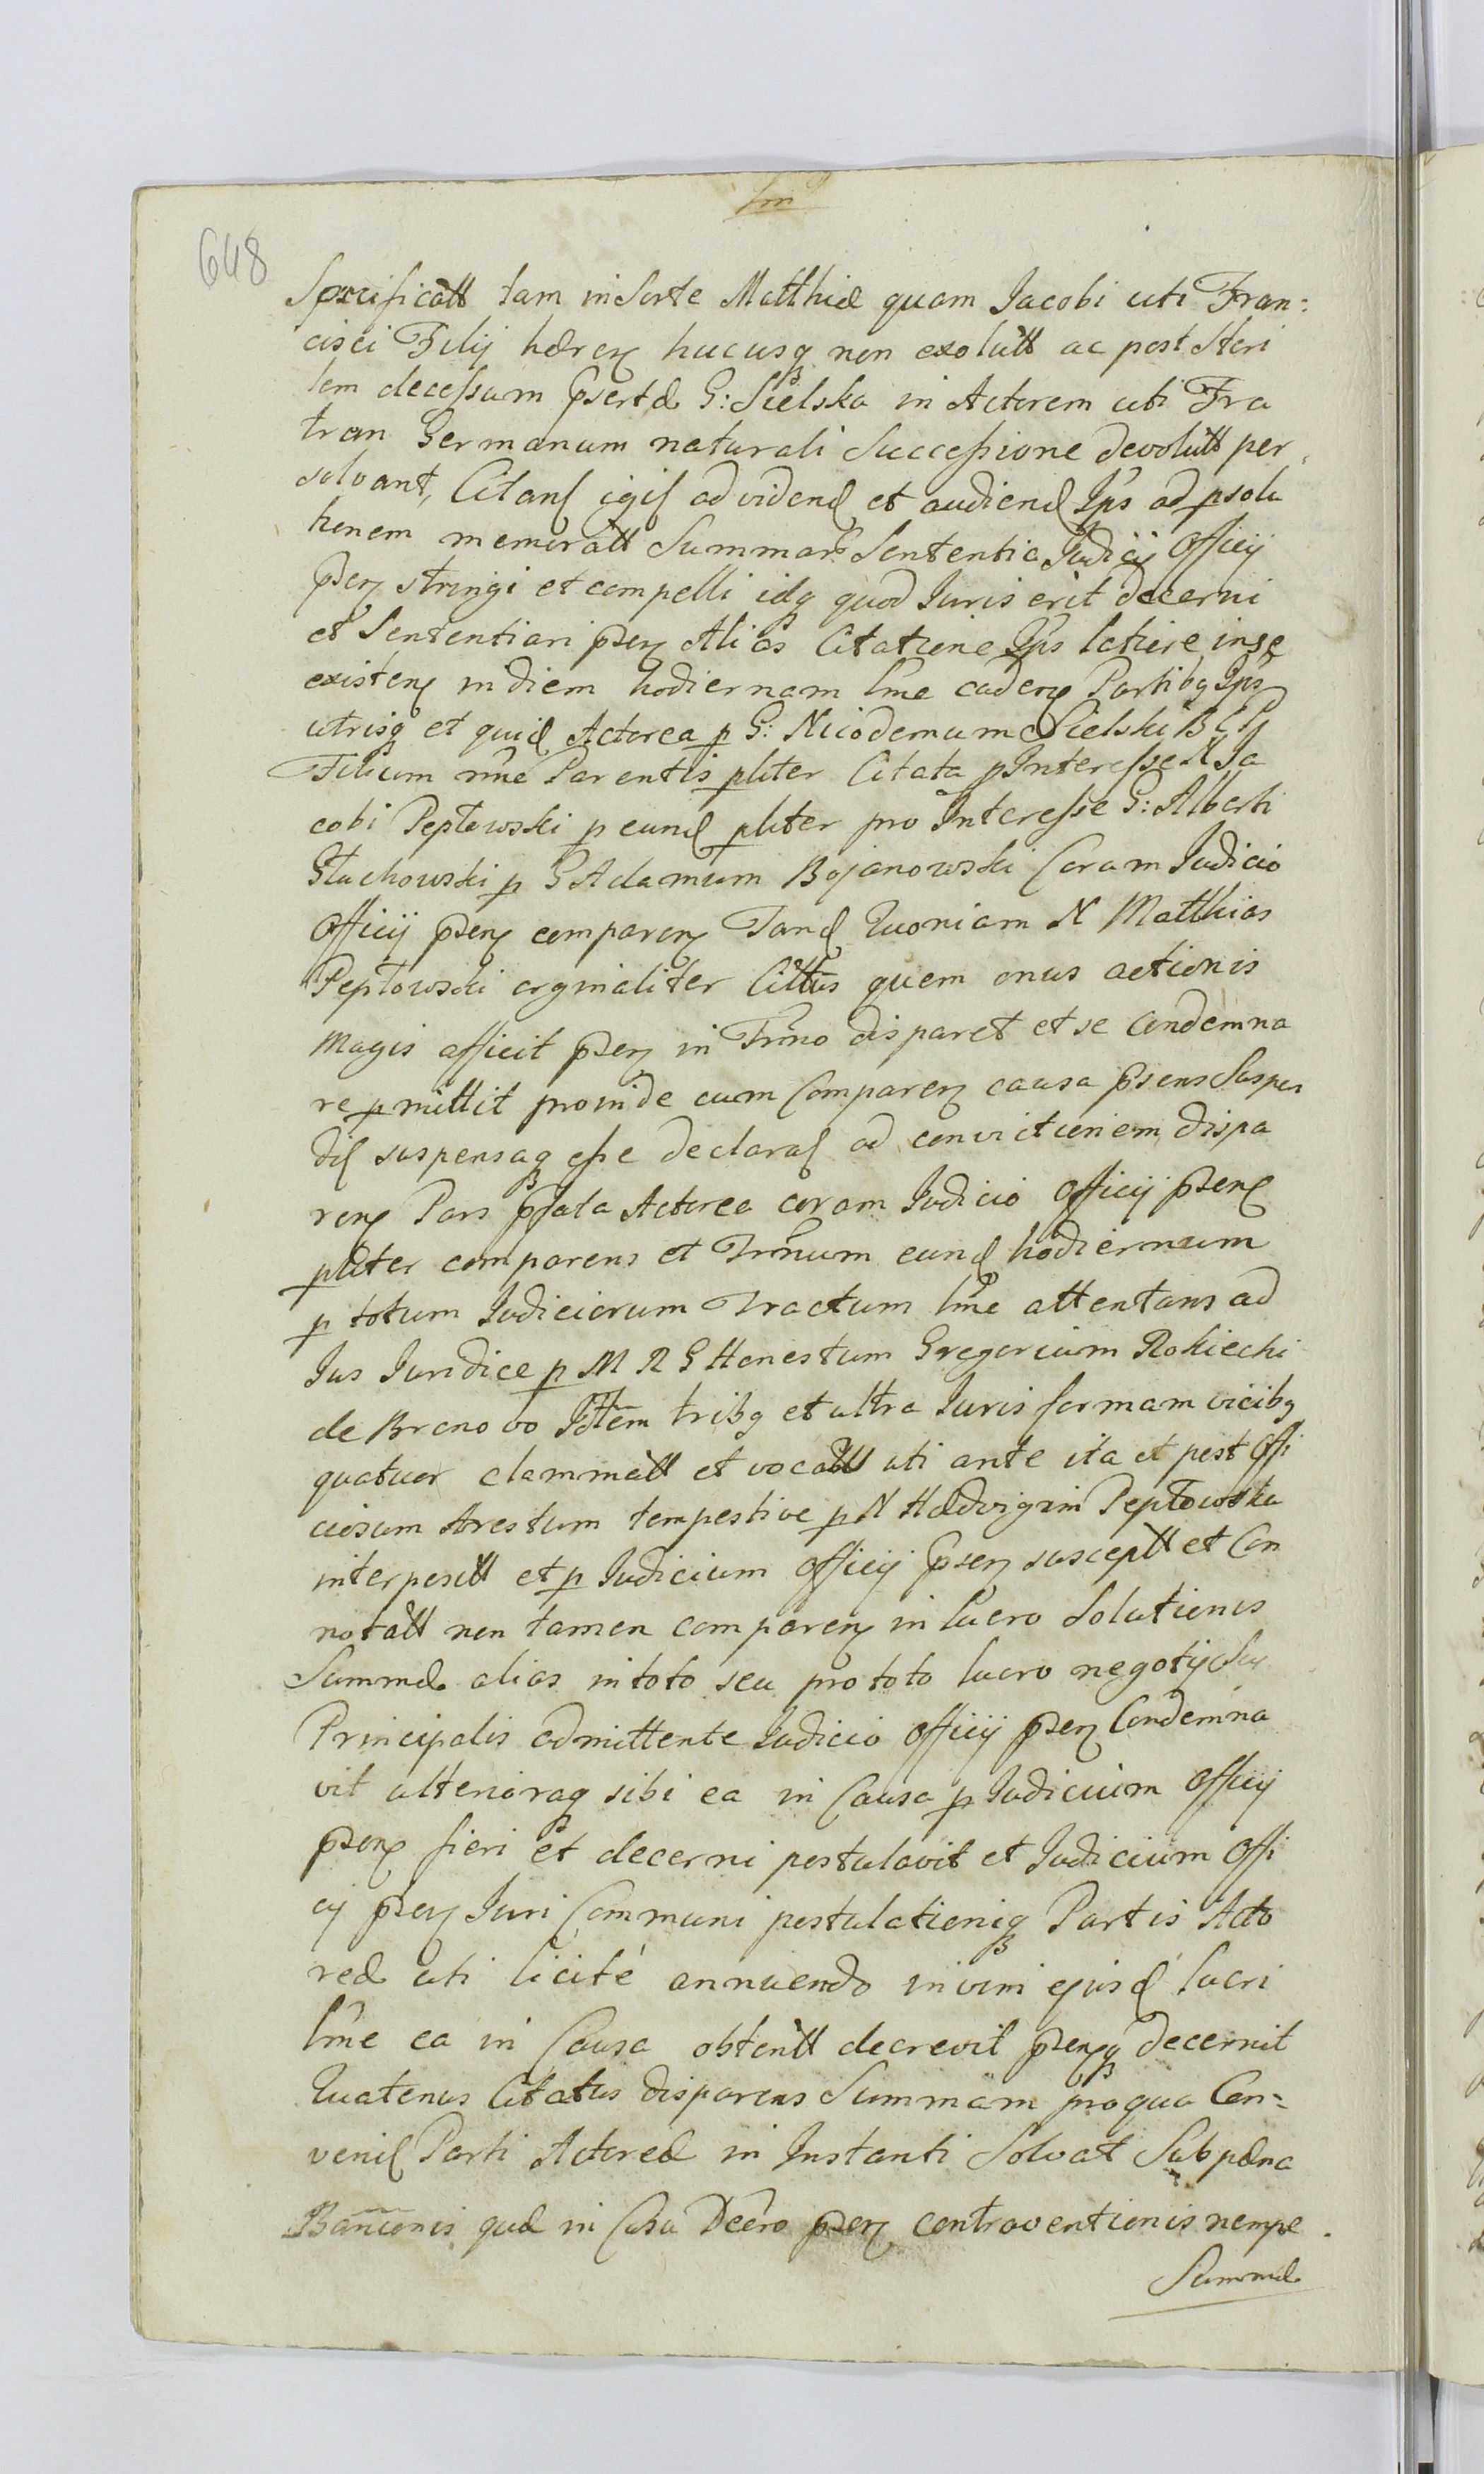 648
Specificatt tam in Sorte Matthiæ quam Jacobi uti Fran=
cisci Filij hæren hucusq non exolutt ac post steri
lem decessum Psertæ G: Sielska in Actorem uti Fra
trem Germanum naturali Successione devolutt per
solvant, Citans igis ad videnđ et audienđ Ips ad psolu
tionem memoratt Summar Sententia Judicij Officij
Psen stringi et compelli idq quod Juris erit decerni
et Sententiari Psen Alias Citatione Ips latiore in se
existen in diem hodiernam lme caden Partibq Ips
utrisq et quid Actorea p G: Nicodemum Sielski
Filium nne Parentis pliter Citata p Interesse N Ja
cobi Peptowski p eund pliter pro Interesse G: Alberti
Głuchowski p G Adamum Bojanowski Coram Judicio
Officij Psen comparen Tand Quoniam N Matthias
Peptowski orginaliter Cittus quem onus actionis
Magis afficit Psen in Trmo disparet et se Condemna
re pmittit proinde cum Comparen causa Psens Suspen
dis suspensaq esse declaras ad convictionem dispa
ren Pars Pfata Actorea coram Judicio Officij Psen
pliter comparens et Trnum eund hodiernum
p totum Judiciorum Tractum lme attentans ad
Jus Juridice p M R G Honestum Gregorium Rokiecki
de Bronovo Jttem tribq et ultra Juris formam vicibq
quatuor clammatt et vocatt uti ante ita et post Offi
ciosum Arestum tempestive p N Hædvigim Peptowska
interpositt et p Judicium Officij Psen susceptt et Con
notatt non tamen comparen in lucro Solutionis
Summæ alias in toto seu pro toto lucro negotij Sui
Principalis admittente Judicio Officij Psen Condemna
vit ulterioraq sibi ea in Causa p Judicium Officij
Psen fieri et decerni postulavit et Judicium Offi
cij Psen Juri Communi postulationiq Partis Acto
reæ uti licité annuendo in vim ejusd lucri
lme ea in Causa obtentt decrevit Psenq decernit
Quatenus Citatus disparens Summam pro qua Con=
venis Parti Actoreæ in Instanti Solvat Sub pæna
Bannionis quæ in Casu Decro Psen controventionis nempe
Summæ